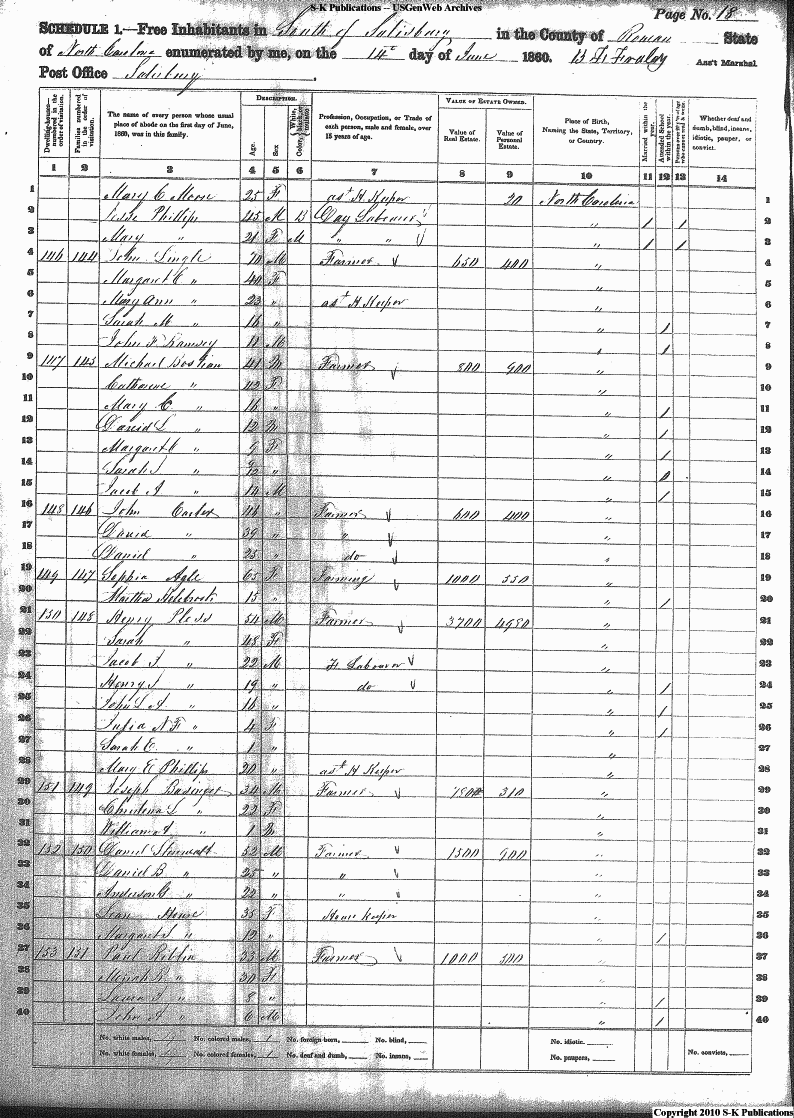 S-K Publications – USGenWeb Archives
Page No. 18
SCHEDULE 1.—Free Inhabitants in South of Salisbury in the County of Rowan State
of North Carolina enumerated by me, on the 14th day of June 1860. Ass't Marshal
Post Office Salisbury
Dwelling-houses numbered in the order of visitation.
Families numbered in the order of visitation.
The name of every person whose usual place of abode on the first day of June, 1860, was in this family.
DESCRIPTION.
Age.
Sex
Color, White, black, or mulatto
Profession, Occupation, or Trade of each person, male and female, over 15 years of age.
VALUE OF ESTATE OWNED.
Value of Real Estate.
Value of Personal Estate.
Place of Birth, Naming the State, Territory, or Country.
Married within the year.
Attended School within the year.
Whether deaf and dumb, blind, insane, idiotic, pauper, or convict.
1 2 3 4 5 6 7 8 9 10 11 12 13 14
1 Mary C Moore 25 F ast H Keeper 20 North Carolina 1
2 Phillips 45 M B Day Labourer " / / 2
3 Mary " 21 F M " " " / / 3
4 146 144 John Lingle 70 M Farmer 650 400 " 4
5 Margaret C " 40 F " 5
6 Mary Ann " 23 " ast H Keeper " 6
7 Sarah M " 16 " " / 7
8 John F Ramsey 11 M " / 8
9 147 145 Michael Bostian 41 M Farmer 800 900 " 9
10 Catharine " 42 F " 10
11 Mary C. " 16 " " / 11
12 David L " 12 M " / 12
13 Margaret C " 9 F " / 13
14 Sarah J " " " 14
15 Jacob A " 14 M " / 15
16 148 146 John Carter " Farmer 600 400 " 16
17 David " 39 " " " 17
18 Daniel " 25 " do " 18
19 149 147 Sophia Agle 65 F Farming 1000 550 " 19
20 Martha 15 " " / 20
21 150 148 Henry Pless 54 M Farmer 3700 4980 " 21
22 Sarah " 48 F " 22
23 Jacob J. " 22 M F Labourer " 23
24 Henry J " 19 " do " / 24
25 John L A. " 16 " " / 25
26 Julia N F " 4 F " / 26
27 Sarah E. " 1 " " 27
28 Mary E Phillips 20 " ast H Keeper " 28
29 151 149 Joseph Basinger 34 M Farmer 310 " 29
30 Christena L " 22 F " 30
31 William A " 1 M " 31
32 152 150 Daniel 52 M Farmer 1500 900 " 32
33 Daniel B " 25 " " " 33
34 Anderson G " 22 " " " 34
35 35 F House Keeper " 35
36 Margaret J " 12 " " / 36
37 153 151 Paul 33 M Farmer 1000 500 " 37
38 " 30 F " 38
39 Laura J " 8 " " / 39
40 John A " 6 M " / 40
No. white males, No. colored males, 1 No. foreign born, No. blind, No. idiotic,
No. white females, No. colored females, 1 No. deaf and dumb, No. insane, No. paupers, No. convicts,
Copyright 2010 S-K Publications